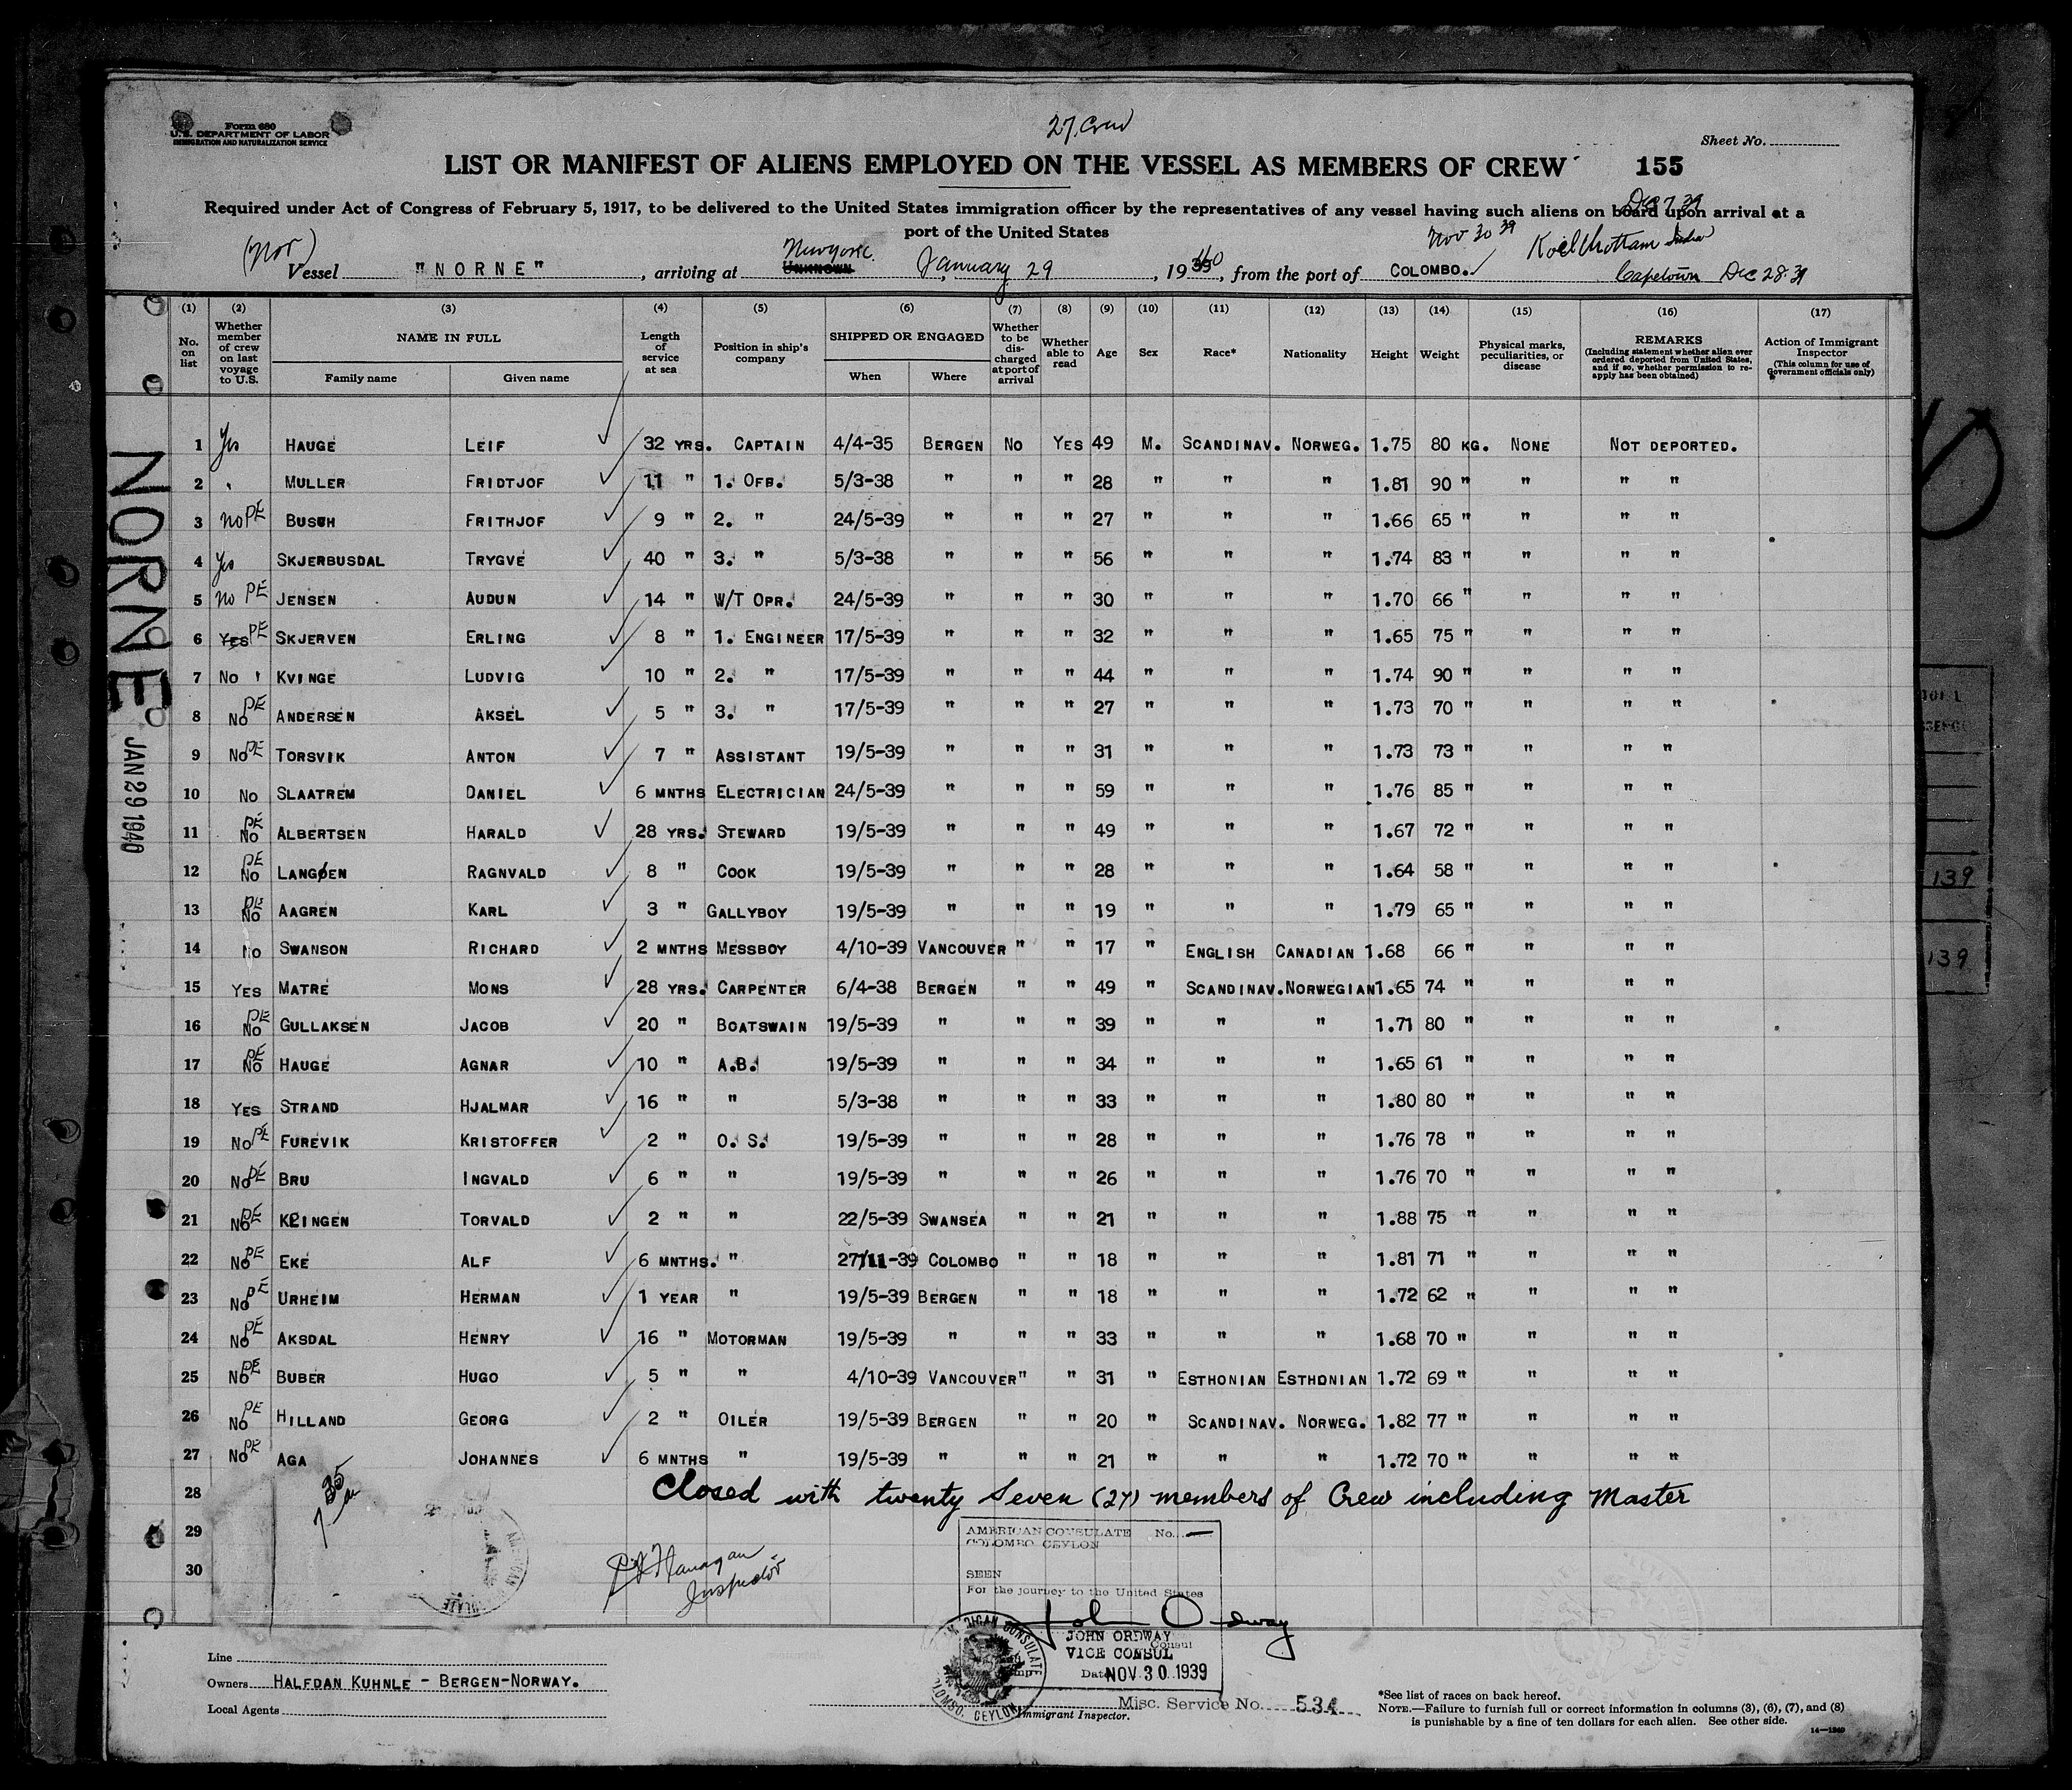 27 Crew
Form 680
U.S. DEPARTMENT OF LABOR
IMMIGRATION AND NATURALIZATION SERVICE
Sheet No.
LIST OR MANIFEST OF ALIENS EMPLOYED ON THE VESSEL AS MEMBERS OF CREW 155
Dec 7 39
Required under Act of Congress of February 5, 1917, to be delivered to the United States immigration officer by the representatives of any vessel having such aliens on board upon arrival at a
port of the United States
(Nor) New York Nov 30 39
Vessel "NORNE", arriving at UNKNOWN January 29, 1940, from the port of COLOMBO. Capetown Dec 28. 39
(1) (2) (3) (4) (5) (6) (7) (8) (9) (10) (11) (12) (13) (14) (15) (16) (17)
No. on list Whether member of crew on last voyage to U.S. NAME IN FULL Family name Given name Length of service at sea Position in ship's company SHIPPED OR ENGAGED When Where Whether to be discharged at port of arrival Whether able to read Age Sex Race* Nationality Height Weight Physical marks, peculiarities, or disease REMARKS (Including statement whether alien ever ordered deported from United States, and if so, whether permission to reapply has been obtained) Action of Immigrant Inspector (This column for use of Government officials only)
1 Yes HAUGE LEIF 32 YRS. CAPTAIN 4/4-35 BERGEN NO YES 49 M. SCANDINAV. NORWEG. 1.75 80 KG. NONE NOT DEPORTED.
2 " MULLER FRIDTJOF 11 " 1. OFB. 5/3-38 " " " 28 " " " 1.81 90 " " " "
3 No PE BUSCH FRITHJOF 9 " 2. " 24/5-39 " " " 27 " " " 1.66 65 " " " "
4 Yes SKJERBUSDAL TRYGVE 40 " 3. " 5/3-38 " " " 56 " " " 1.74 83 " " " "
5 No PE JENSEN AUDUN 14 " W/T OPR. 24/5-39 " " " 30 " " " 1.70 66 " " " "
6 YES PE SKJERVEN ERLING 8 " 1. ENGINEER 17/5-39 " " " 32 " " " 1.65 75 " " " "
7 NO " KVINGE LUDVIG 10 " 2. " 17/5-39 " " " 44 " " " 1.74 90 " " " "
8 NO PE ANDERSEN AKSEL 5 " 3. " 17/5-39 " " " 27 " " " 1.73 70 " " " "
9 NO PE TORSVIK ANTON 7 " ASSISTANT 19/5-39 " " " 31 " " " 1.73 73 " " " "
10 NO SLAATREM DANIEL 6 MNTHS ELECTRICIAN 24/5-39 " " " 59 " " " 1.76 85 " " " "
11 NO PE ALBERTSEN HARALD 28 YRS. STEWARD 19/5-39 " " " 49 " " " 1.67 72 " " " "
12 NO PE LANGØEN RAGNVALD 8 " COOK 19/5-39 " " " 28 " " " 1.64 58 " " " "
13 NO PE AAGREN KARL 3 " GALLYBOY 19/5-39 " " " 19 " " " 1.79 65 " " " "
14 NO SWANSON RICHARD 2 MNTHS MESSBOY 4/10-39 VANCOUVER " " 17 " ENGLISH CANADIAN 1.68 66 " " " "
15 YES MATRE MONS 28 YRS. CARPENTER 6/4-38 BERGEN " " 49 " SCANDINAV. NORWEGIAN 1.65 74 " " " "
16 NO PE GULLAKSEN JACOB 20 " BOATSWAIN 19/5-39 " " " 39 " " " 1.71 80 " " " "
17 NO PE HAUGE AGNAR 10 " A.B. 19/5-39 " " " 34 " " " 1.65 61 " " " "
18 YES STRAND HJALMAR 16 " " 5/3-38 " " " 33 " " " 1.80 80 " " " "
19 NO PE FUREVIK KRISTOFFER 2 " O. S. 19/5-39 " " " 28 " " " 1.76 78 " " " "
20 NO PE BRU INGVALD 6 " " 19/5-39 " " " 26 " " " 1.76 70 " " " "
21 NO PE KLINGEN TORVALD 2 " " 22/5-39 SWANSEA " " 21 " " " 1.88 75 " " " "
22 NO PE EKE ALF 6 MNTHS. " 27/11-39 COLOMBO " " 18 " " " 1.81 71 " " " "
23 NO PE URHEIM HERMAN 1 YEAR " 19/5-39 BERGEN " " 18 " " " 1.72 62 " " " "
24 NO PE AKSDAL HENRY 16 " MOTORMAN 19/5-39 " " " 33 " " " 1.68 70 " " " "
25 NO PE BUBER HUGO 5 " " 4/10-39 VANCOUVER " " 31 " ESTHONIAN ESTHONIAN 1.72 69 " " " "
26 NO PE HILLAND GEORG 2 " OILER 19/5-39 BERGEN " " 20 " SCANDINAV. NORWEG. 1.82 77 " " " "
27 NO PE AGA JOHANNES 6 MNTHS " 19/5-39 " " " 21 " " " 1.72 70 " " " "
28 Closed with twenty Seven (27) members of Crew including Master
29
30
NORNE
JAN 29 1940
139
139
Flanagan
Inspector
AMERICAN CONSULATE No. —
COLOMBO, CEYLON
SEEN
For the journey to the United States
John Ordway
JOHN ORDWAY
VICE CONSUL
Date NOV 30 1939
AMERICAN CONSULATE
COLOMBO, CEYLON
Line
Owners HALFDAN KUHNLE - BERGEN-NORWAY.
Local Agents
Immigrant Inspector.
Misc. Service No. 534
*See list of races on back hereof.
NOTE.—Failure to furnish full or correct information in columns (3), (6), (7), and (8)
is punishable by a fine of ten dollars for each alien. See other side.
14—1240